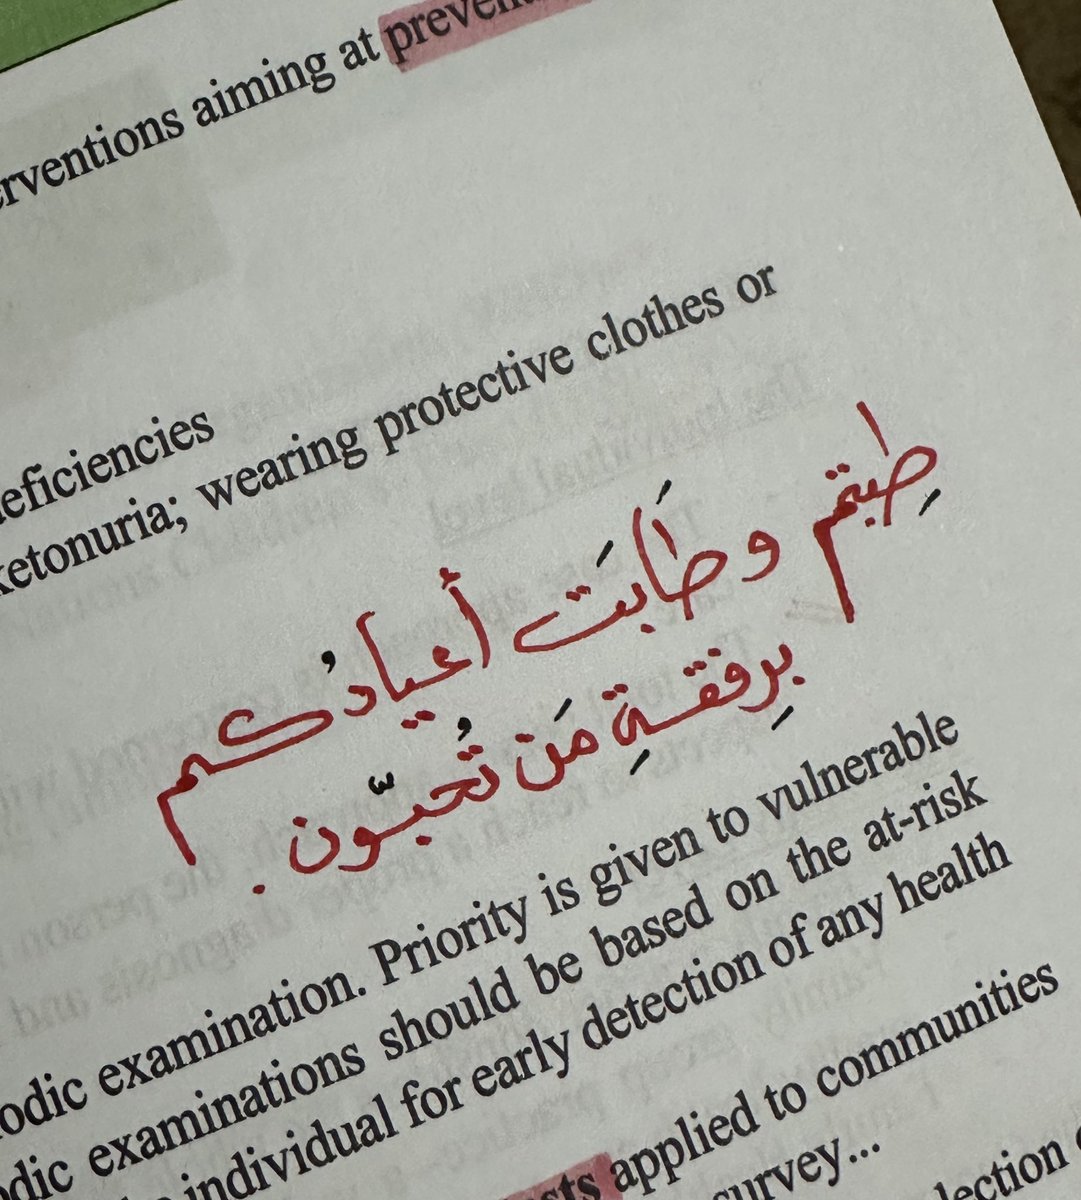 aiming at
eficiencies
ketonuria; wearing protective clothes or
طِبتم وطَابَت أعيادُكم
بِرفقةِ مَن تُحبّون.
examination. Priority is given to vulnerable
examinations should be based on the at-risk
individual for early detection of any health
applied to communities
survey...